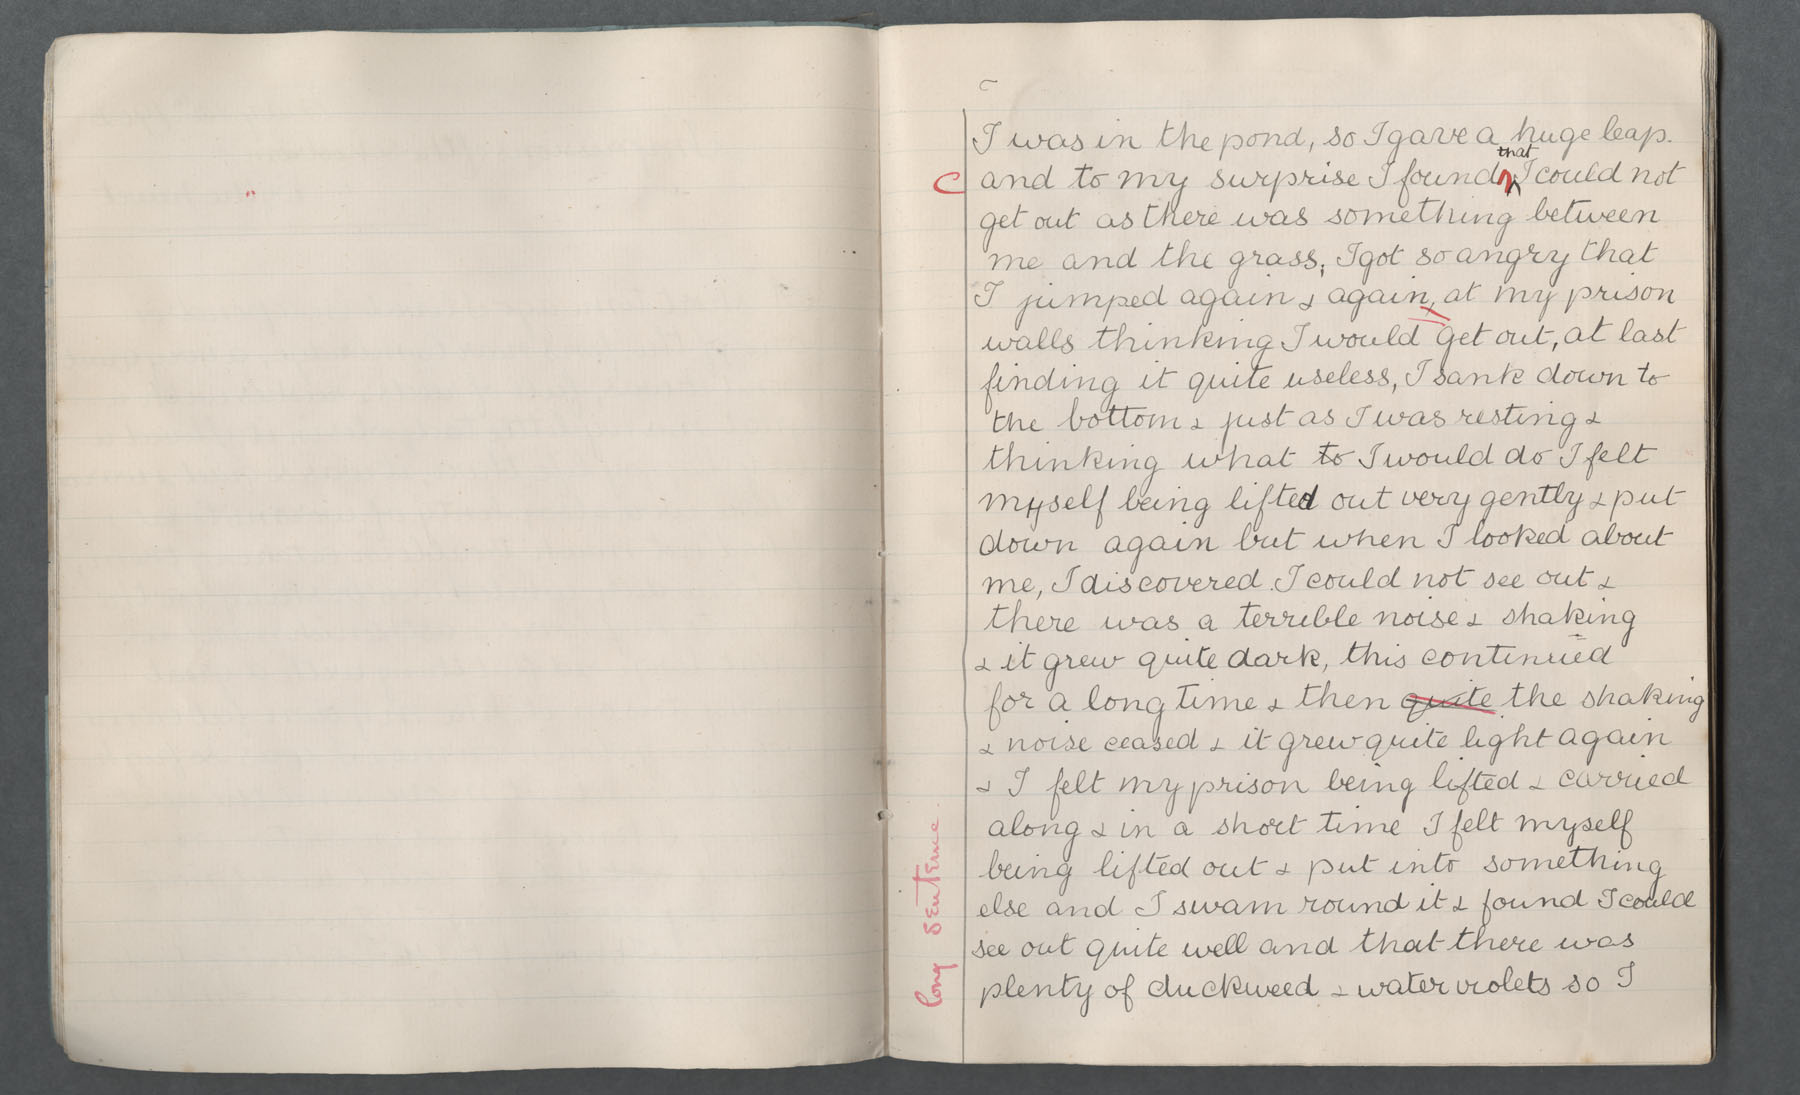 I was in the pond, so I gave a huge leap.
that
C and to my surprise I found I could not
get out as there was something between
me and the grass; I got so angry that
I jumped again & again, at my prison
walls thinking I would get out, at last
finding it quite useless, I sank down to
the bottom & just as I was resting &
thinking what to I would do I felt
myself being lifted out very gently & put
down again but when I looked about
me, I discovered I could not see out &
there was a terrible noise & shaking
& it grew quite dark, this continued
for a long time & then quite the shaking
& noise ceased & it grew quite light again
& I felt my prison being lifted & carried
along & in a short time I felt myself
being lifted out & put into something
else and I swam round it & found I could
see out quite well and that there was
plenty of duckweed & water violets so I
long sentence